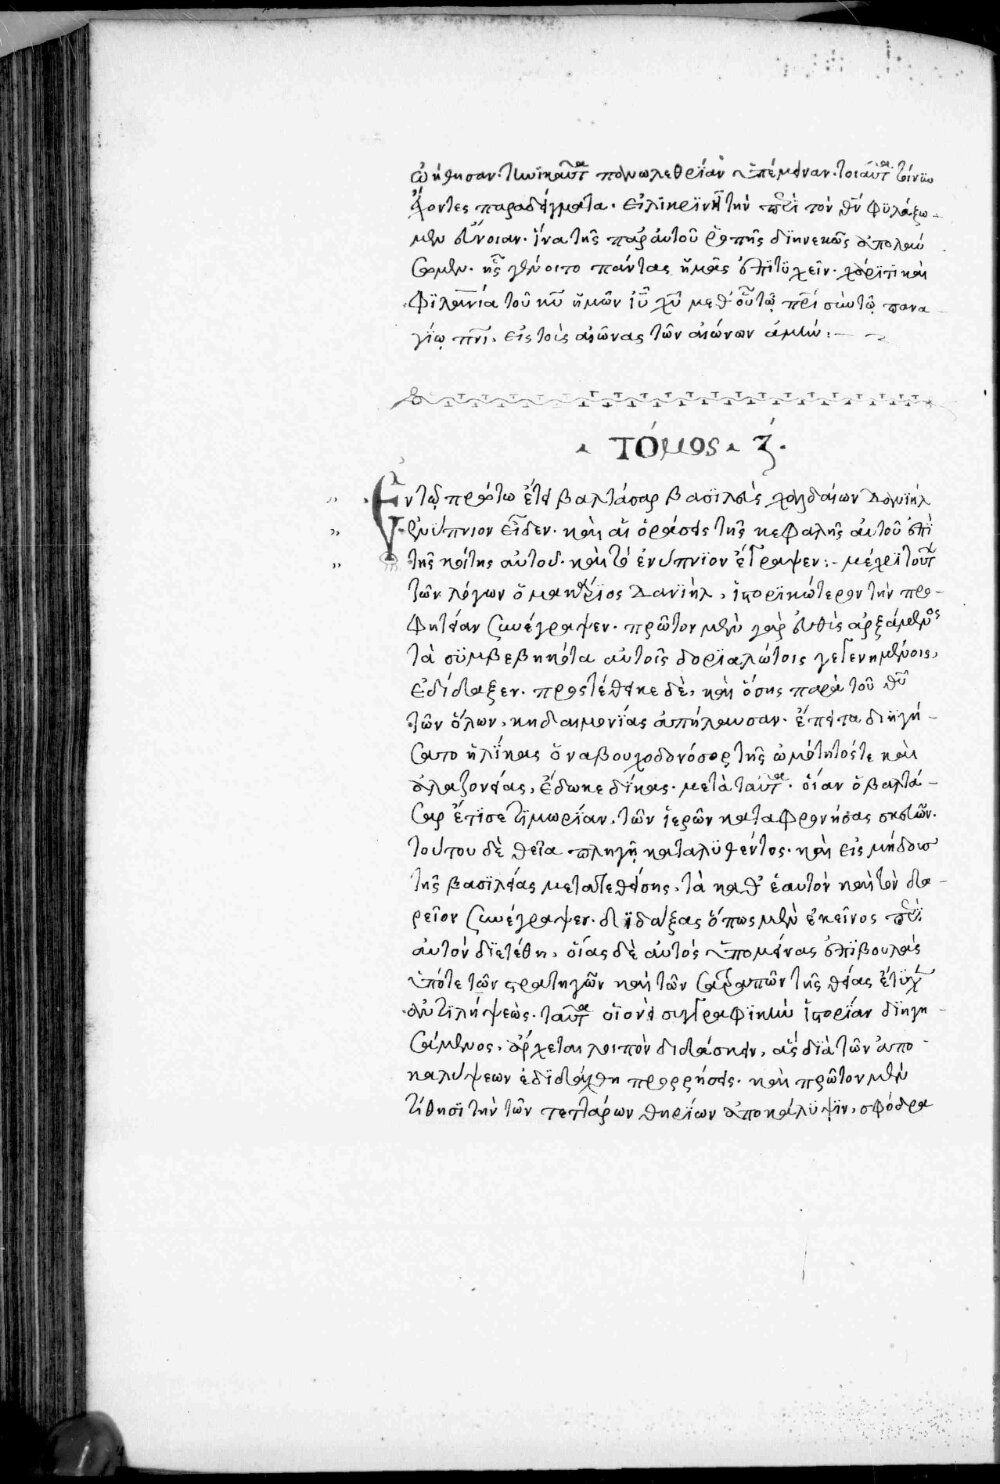 ὠήθησαν. τηνικαῦτα πανωλεθρίαν ὑπέμειναν. τοιαῦτα τοίνυν
ἔχοντες παραδείγματα. εἰλικρινῆ τὴν περὶ τὸν θν φυλάξω-
μεν εὔνοιαν. ἵνα τῆς παρ αὐτοῦ ῥοπῆς διηνεκῶς ἀπολαύ
σωμεν. ἧς γένοιτο πάντας ἡμᾶς ἐπιτυχεῖν. χάριτι καὶ
φιλανία τοῦ κυ ἡμῶν ιυ χυ μεθ οὗ τῶ πρὶ σὺν τῶ πανα-
γίω πνι. εἰς τοὺς αἰῶνας τῶν αἰώνων ἀμήν:-
ΤΟμος ζ.
Ἐν τῶ πρώτω ἔτει βαλτάσαρ βασιλέως χαλδαίων Δανιὴλ
ἐνύπνιον εἶδεν. καὶ αἱ ὁράσεις τῆς κεφαλῆς αὐτοῦ ἐπὶ
τῆς κοίτης αὐτοῦ. καὶ τὸ ἐνύπνιον ἔγραψεν:- μέχρι τούτων
τῶν λόγων ὁ μακάριος Δανιὴλ, ἱστορικώτερον τὴν προ-
φητείαν συνέγραψεν. πρῶτον μὲν γὰρ εὐθὺς ἀρξάμενος
τὰ συμβεβηκότα αὐτοῖς δοριαλώτοις γεγενημένοις,
ἐδίδαξεν. προστέθεικε δὲ, καὶ ὅσης παρὰ τοῦ θυ
τῶν ὅλων, κηδαιμονίας ἀπήλαυσαν. ἔπειτα διηγή-
σατο ἡλίκας ὁ ναβουχοδονόσορ τῆς ὠμότητός τε καὶ
ἀλαζονείας, ἔδωκε δίκας. μετὰ ταῦτα. οἵαν ὁ βαλτά-
σαρ ἔτισε τιμωρίαν, τῶν ἱερῶν καταφρονήσας σκευῶν.
τούτου δὲ θεία πληγῆ καταλυθέντος. καὶ εἰς μήδους
τῆς βασιλείας μετατεθείσης, τὰ καθ ἑαυτὸν καὶ τὸν δα-
ρεῖον συνέγραψεν. διδάξας ὅπως μὲν ἐκεῖνος περὶ
αὐτὸν διετέθη, οἵας δὲ αὐτὸς ὑπομείνας ἐπιβουλὰς
ὑπό τε τῶν στρατηγῶν καὶ τῶν σατραπῶν τῆς θείας ἔτυχεν
ἀντιλήψεως. ταῦτα οἱονεὶ συγγραφικὴν ἱστορίαν διηγη-
σάμενος, ἄρχεται λοιπὸν διδάσκειν, ἃς διὰ τῶν ἀπο-
καλύψεων ἐδιδάχθη προρρήσεις. καὶ πρῶτον μὲν
τίθησι τὴν τῶν τεττάρων θηρίων ἀποκάλυψιν, σφόδρα